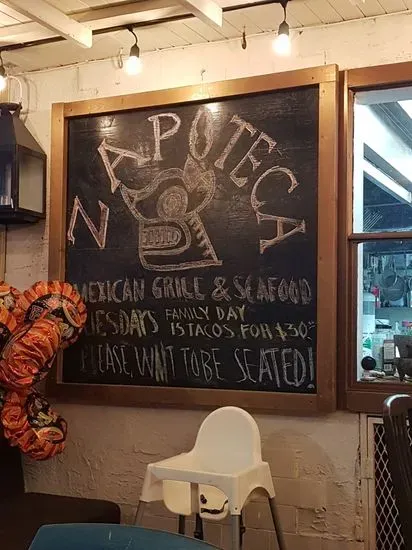 ZAPOTECA
MEXICAN GRILL & SEAFOOD
TUESDAYS FAMILY DAY
15 TACOS FOR $30
PLEASE, WAIT TO BE SEATED!